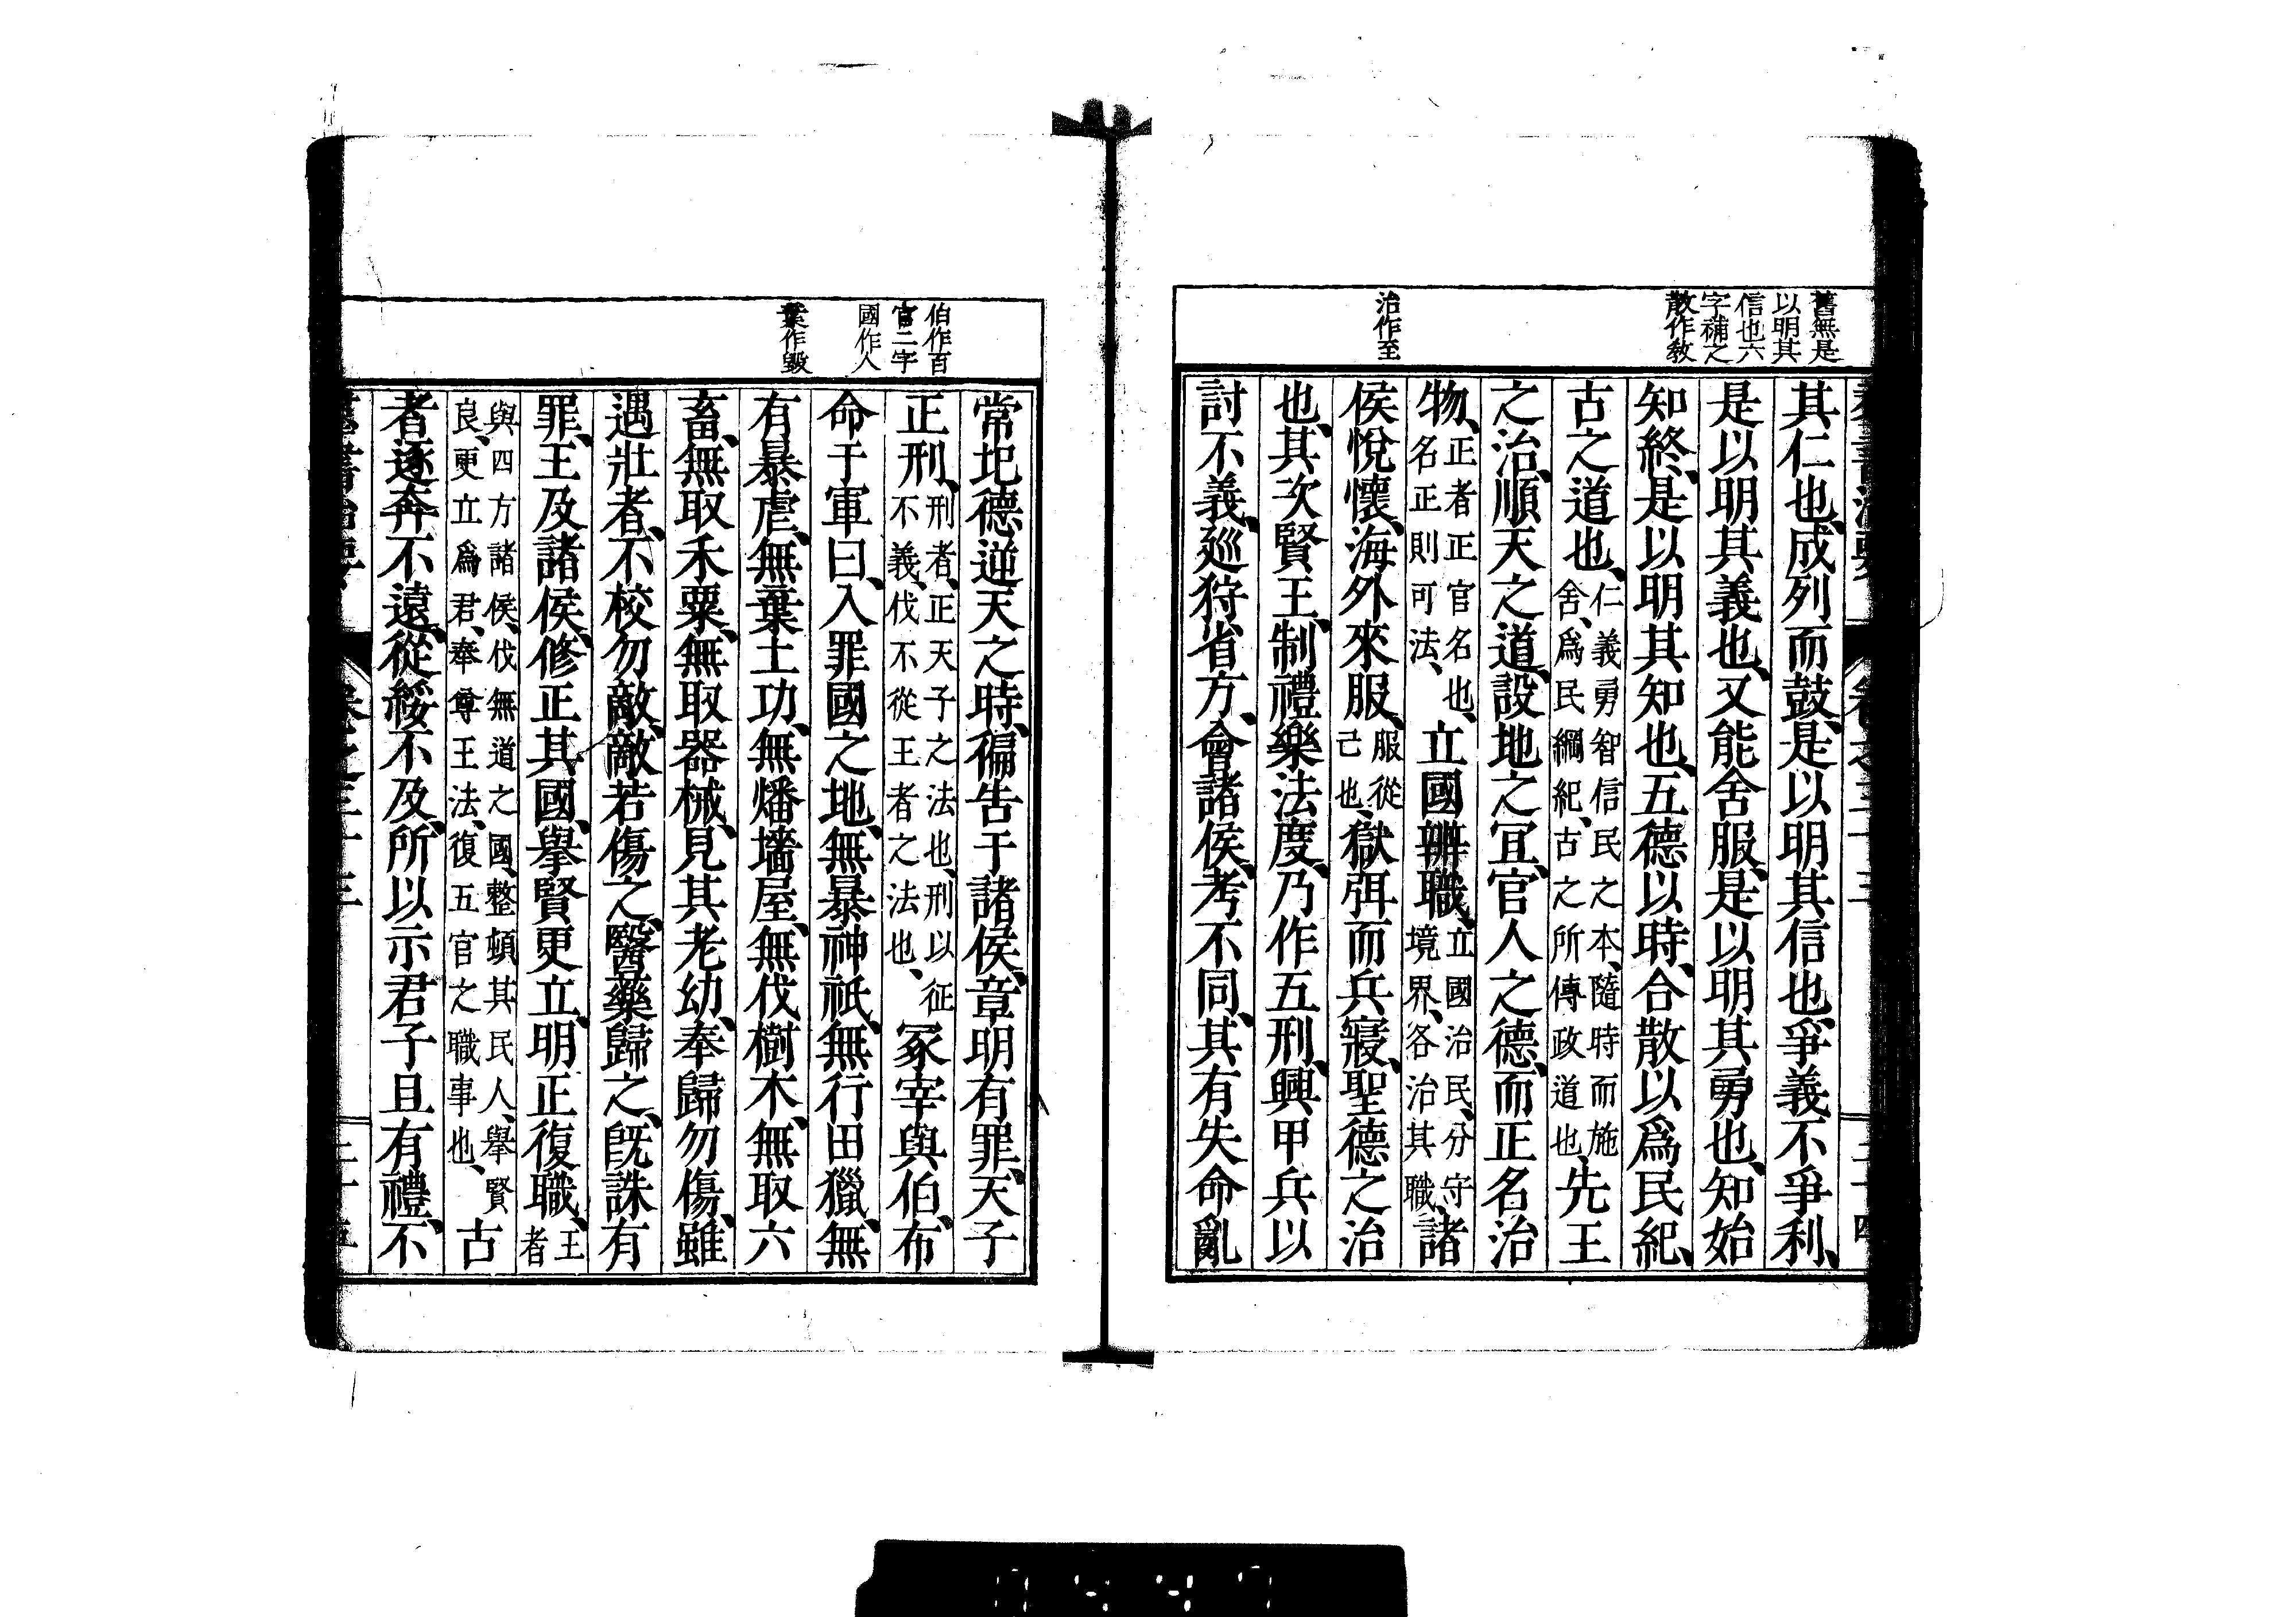 舊無是
以明其
信也六
字補之
散作教
治作至
其仁也、成列而鼓、是以明其信也、爭義不爭利、
是以明其義也、又能舍服、是以明其勇也、知始
知終、是以明其知也、五德以時、合散以爲民紀、
古之道也、仁義勇智信民之本、隨時而施舍、爲民綱紀、古之所傳政道也、先王
之治、順天之道、設地之冝、官人之德、而正名治
物、正者正官名也、名正則可法、立國辨職、立國治民、分守境界、各治其職、諸
侯悅懷、海外來服、服從己也、獄弭而兵寢、聖德之治
也、其次賢王、制禮樂法度、乃作五刑、興甲兵以
討不義、巡狩、省方、會諸侯、考不同、其有失命亂
伯作百
官二字
國作人
葉作毀
常圯德、逆天之時、徧告于諸侯、章明有罪、天子
正刑、刑者、正天子之法也、刑以征不義、伐不從王者之法也、冢宰與伯、布
命于軍曰、入罪國之地、無暴神祇、無行田獵、無
有暴虐、無葉土功、無燔墻屋、無伐樹木、無取六
畜、無取禾粟、無取器械、見其老幼、奉歸勿傷、雖
遇壯者、不校勿敵、敵若傷之、醫藥歸之、旣誅有
罪、王及諸侯、修正其國、擧賢更立、明正復職、王者
與四方諸侯、伐無道之國、整頓其民人、擧賢良、更立爲君、奉尊王法、復五官之職事也、古
者逐奔不遠、從綏不及、所以示君子且有禮、不